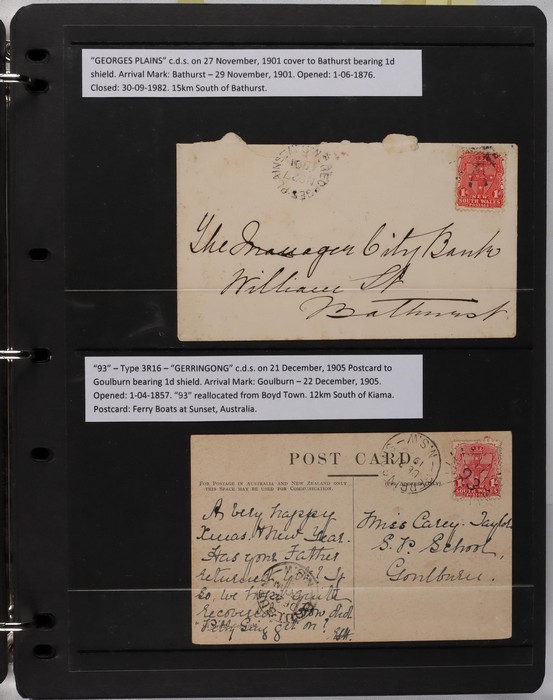 "GEORGES PLAINS" c.d.s. on 27 November, 1901 cover to Bathurst bearing 1d
shield. Arrival Mark: Bathurst – 29 November, 1901. Opened: 1-06-1876.
Closed: 30-09-1982. 15km South of Bathurst.
GEORGES PLAINS
The Manager City Bank
William St
Bathurst
NEW
SOUTH WALES
POSTAGE
"93" – Type 3R16 – "GERRINGONG" c.d.s. on 21 December, 1905 Postcard to
Goulburn bearing 1d shield. Arrival Mark: Goulburn – 22 December, 1905.
Opened: 1-04-1857. "93" reallocated from Boyd Town. 12km South of Kiama.
Postcard: Ferry Boats at Sunset, Australia.
POST CARD
N.S.W
For Postage in Australia and New Zealand only
this Space may be used for Communication.
SOUTH WALES
A very happy
Xmas & New Year.
Has your Father
returned yet? If
so, we hope quite
recovered. How did
Petty Gay get on?
Miss Carey-Taylor
S. P. School,
Goulburn.